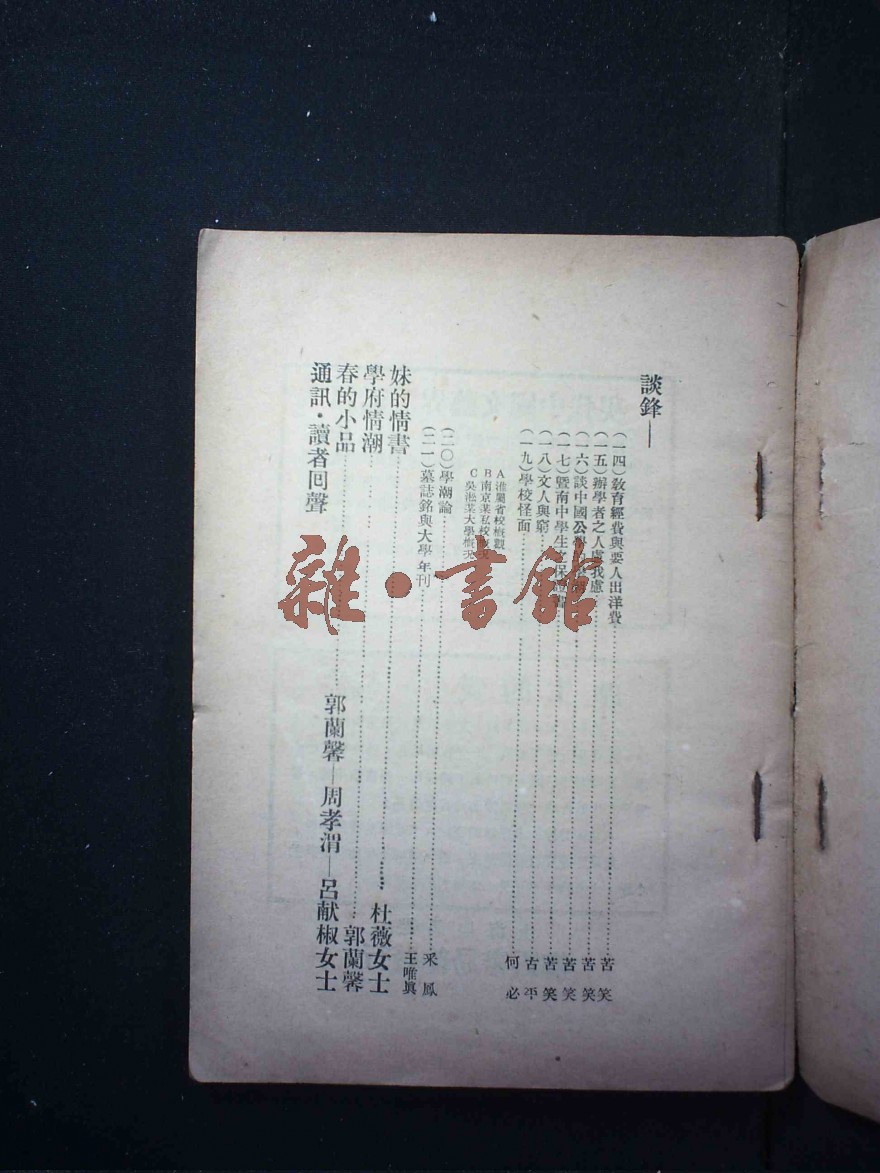 談鋒—
(一四)教育經費與要人出洋費……苦笑
(一五)辦學者之人虞我慮……苦笑
(一六)談中國公學……苦笑
(一七)暨南中學生……苦笑
(一八)文人與窮……古平
(一九)學校怪面……何必
A淮屬省校概觀
B南京某私校概況
C吳淞某大學概況
(二〇)學潮論……采鳳
(二一)墓誌銘與大學年刊……王唯眞
妹的情書……杜薇女士
學府情潮……郭蘭馨
春的小品……
通訊·讀者回聲
郭蘭馨—周孝渭—呂献椒女士
雜·書館